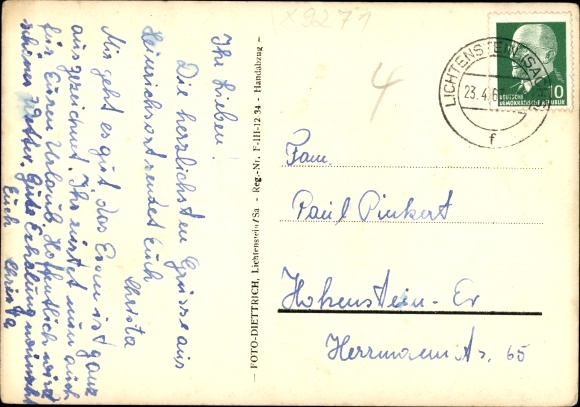 Ihr Lieben!
Die herzlichsten Grüsse aus
Heinrichsort sendet Euch
Christa
Mir geht es gut das Essen ist ganz
ausgezeichnet. Ihr rüstet nun auch
für Euren Urlaub. Hoffentlich wird
schönes Wetter. Gute Erholung wünscht
Euch Christa
— FOTO-DIETTRICH, Lichtenstein/Sa - Reg.-Nr. F-III-12 34 - Handabzug —
X9271
4
LICHTENSTEIN (SACHS)
23.4.6
f
10
DEUTSCHE
DEMOKRATISCHE REPUBLIK
Fam
Paul Pinkert
Hohenstein-Er
Herrmann Str. 65